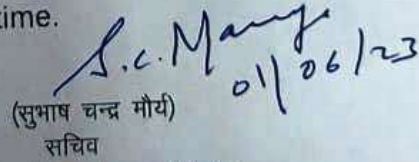 time.
S.c. Maurya
01/06/23
(सुभाष चन्द्र मौर्य)
सचिव